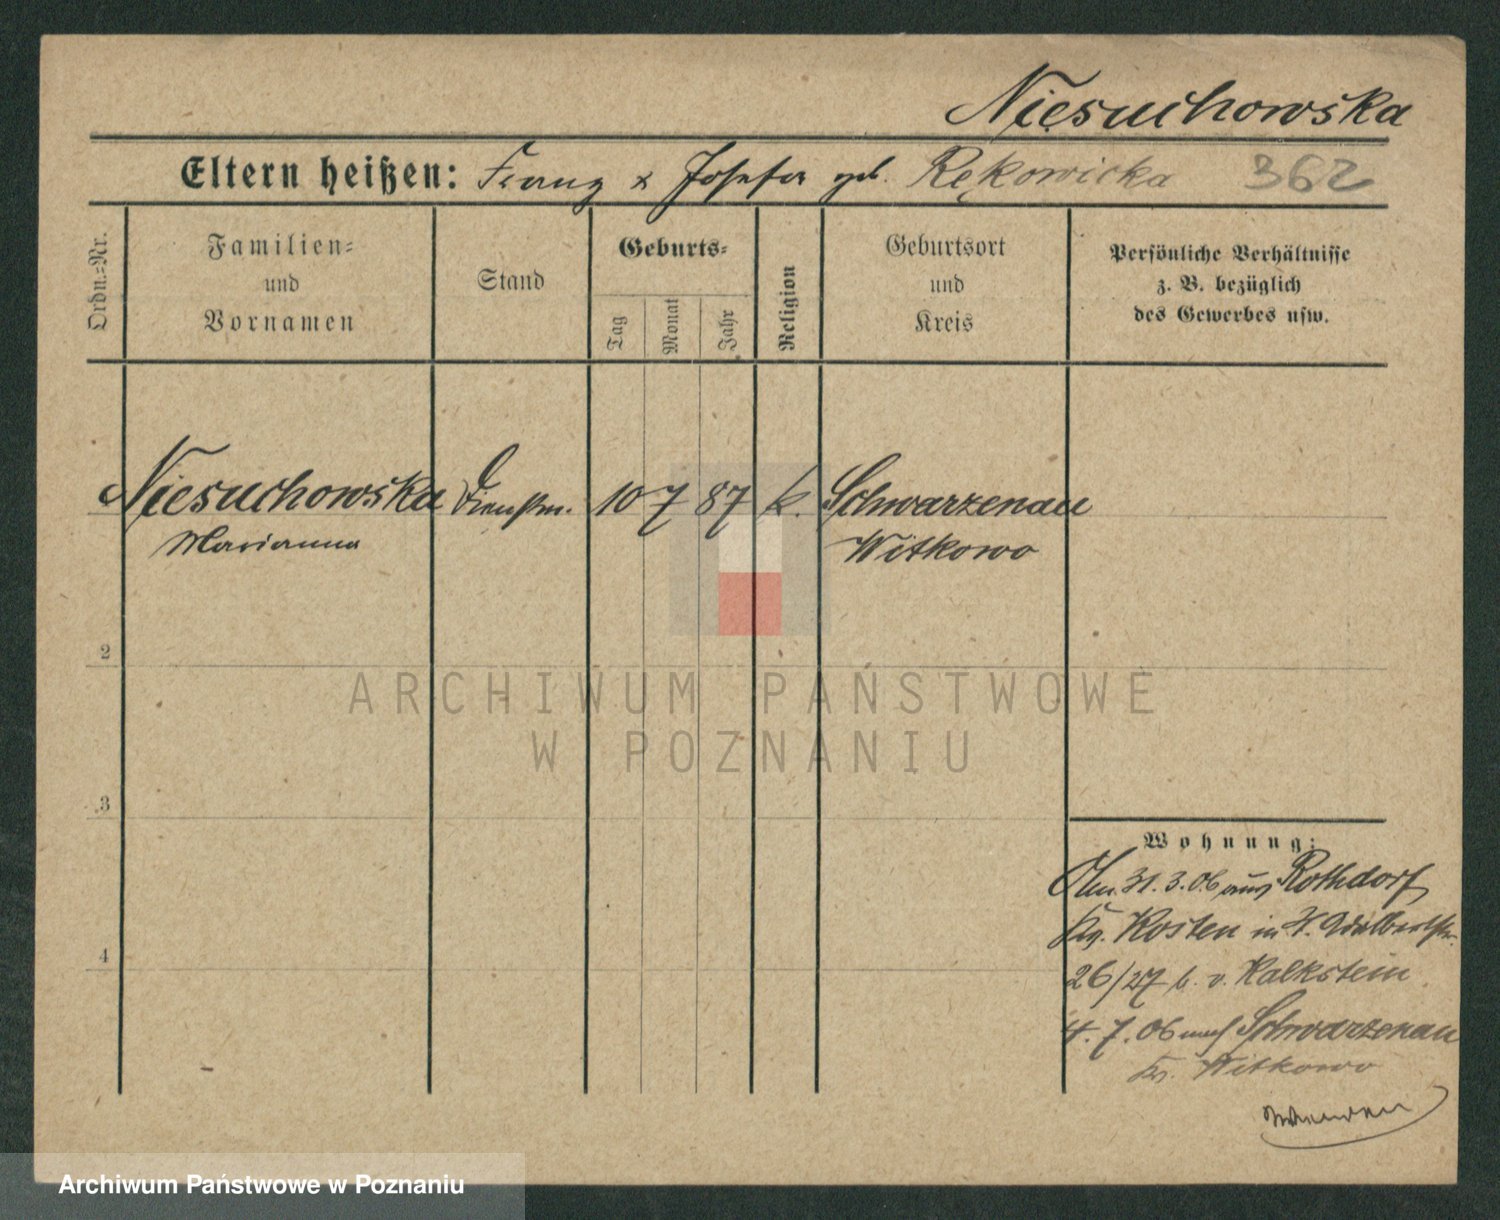 Niesuchowska
Eltern heißen: Franz & Josefa geb. Rękowicka 362
Ordn.=Nr.
Familien=
und
Vornamen
Stand
Geburts=
Tag
Monat
Jahr
Religion
Geburtsort
und
Kreis
Persönliche Verhältnisse
z. B. bezüglich
des Gewerbes usw.
Niesuchowska Dienstm. 10 7 87 k. Schwarzenau
Marianna Witkowo
2
ARCHIWUM PAŃSTWOWE
W POZNANIU
3
Wohnung:
Am 31.3.06 aus Rothdorf
Kr. Kosten in St. Adalbertstr.
26/27 b. v. Kalkstein
4
4. 7. 06 nach Schwarzenau
Kr. Witkowo
wenden
Archiwum Państwowe w Poznaniu